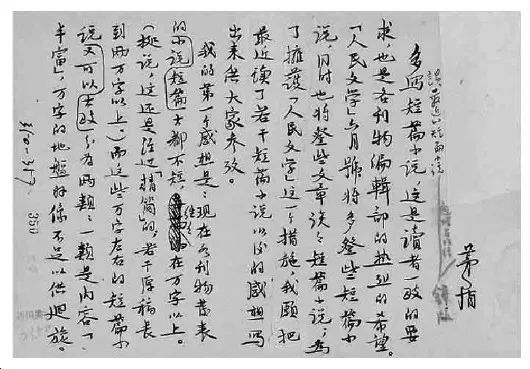 茅盾
談最近的短篇小说
多写短篇小说，这是讀者一致的要
求，也是各刊物編輯部的热烈的希望。
「人民文学」六月號将多登些短篇小
说，同时也将登些文章谈谈短篇小说；为
了擁護「人民文学」这一个措施，我願把
最近读了若干短篇小说以后的感想写
出来供大家参考。
我的第一个感想是：现在各刊物发表
的小说短篇大都不短，往往在万字以上。
（据说，这还是经过「精简」的，若干原稿长
到两万字以上。）而这些万字左右的短篇小
说又可以大致分为两類：一類是内容「
丰富」，万字的地盤好像不足以供迴旋。
310-317
350